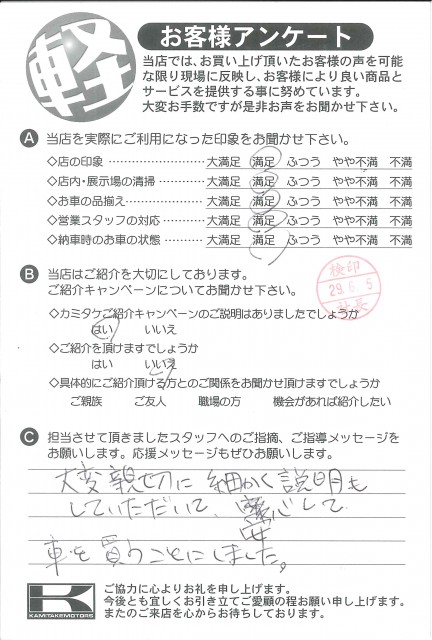 軽
お客様アンケート
当店では、お買い上げ頂いたお客様の声を可能
な限り現場に反映し、お客様により良い商品と
サービスを提供する事に努めています。
大変お手数ですが是非お声をお聞かせ下さい。
A 当店を実際にご利用になった印象をお聞かせ下さい。
◇店の印象 ………………………… 大満足 満足 ふつう やや不満 不満
◇店内・展示場の清掃 …………… 大満足 満足 ふつう やや不満 不満
◇お車の品揃え …………………… 大満足 満足 ふつう やや不満 不満
◇営業スタッフの対応 …………… 大満足 満足 ふつう やや不満 不満
◇納車時のお車の状態 …………… 大満足 満足 ふつう やや不満 不満
B 当店はご紹介を大切にしております。
ご紹介キャンペーンについてお聞かせ下さい。
検印
29.6.5
社長
◇カミタケご紹介キャンペーンのご説明はありましたでしょうか
はい いいえ
◇ご紹介を頂けますでしょうか
はい いいえ
◇具体的にご紹介頂ける方とのご関係をお聞かせ頂けますでしょうか
ご親族 ご友人 職場の方 機会があれば紹介したい
C 担当させて頂きましたスタッフへのご指摘、ご指導メッセージを
お願いします。応援メッセージもぜひお願いします。
大変親切に細かく説明も
していただいて、安心して
車を買うことにしました。
K
KAMITAKEMOTORS
ご協力に心よりお礼を申し上げます。
今後とも宜しくお引き立てご愛顧の程お願い申し上げます。
またのご来店を心からお待ちしております。